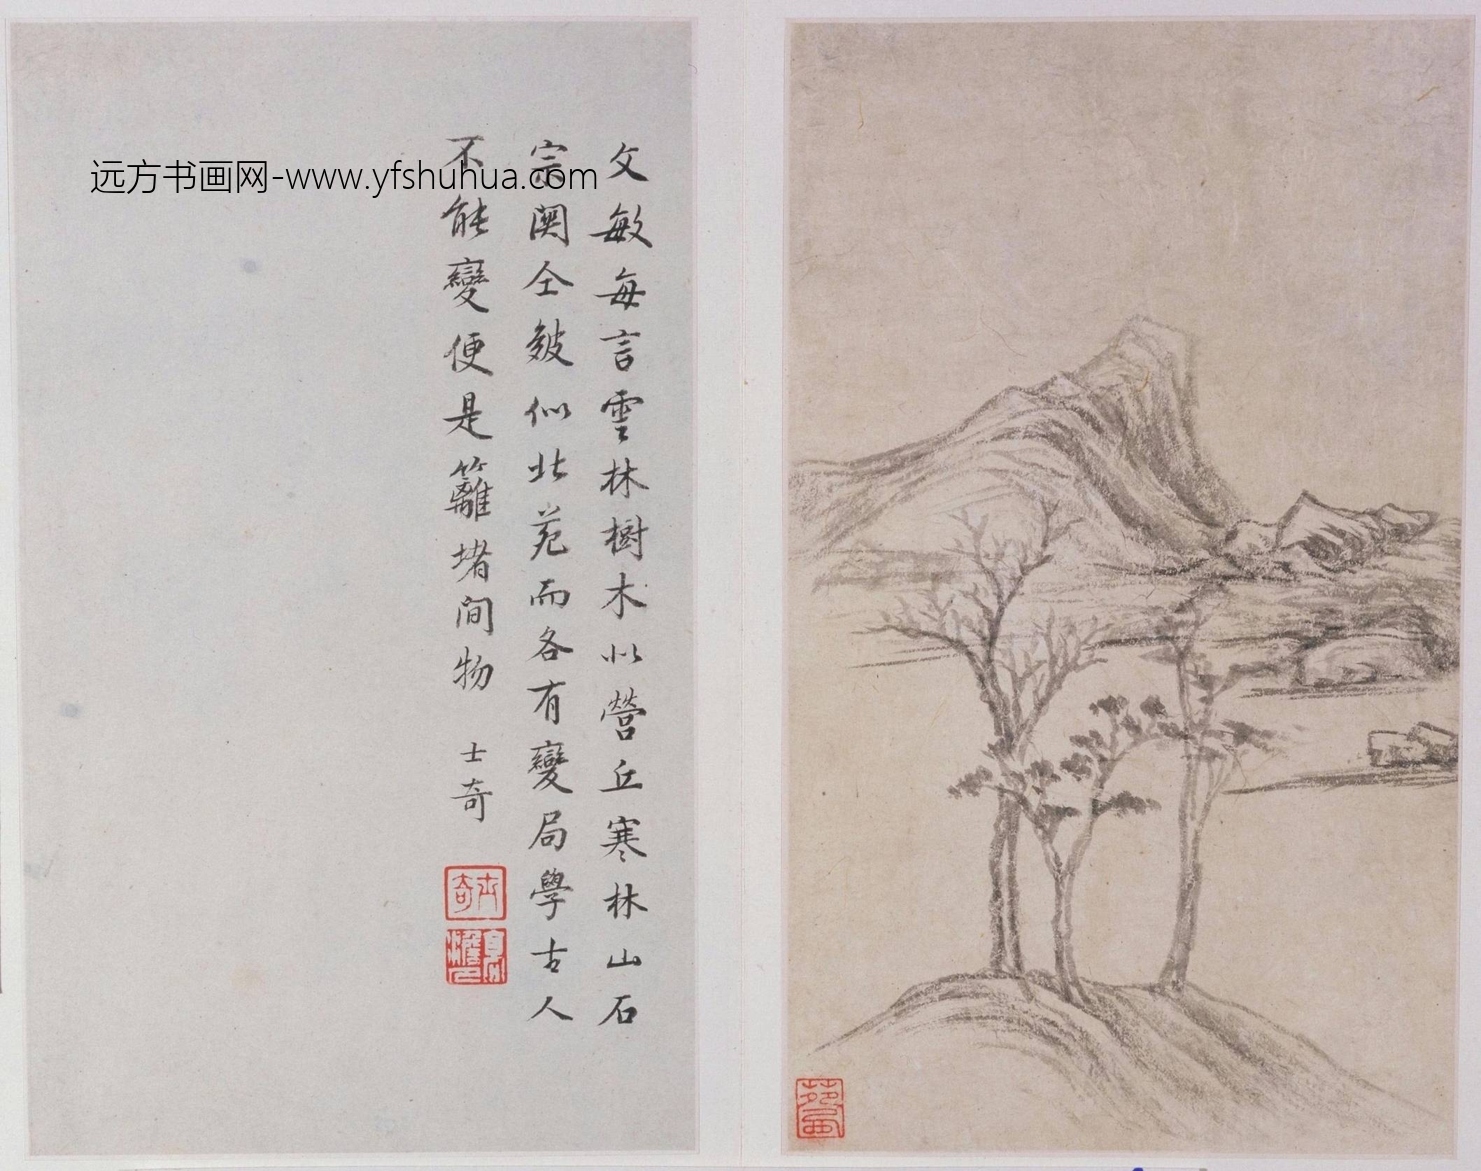 文敏每言雲林樹木似營丘寒林山石
宗関仝皴似北苑而各有變局學古人
不能變便是籬堵间物
士奇
士奇
远方书画网-www.yfshuhua.com